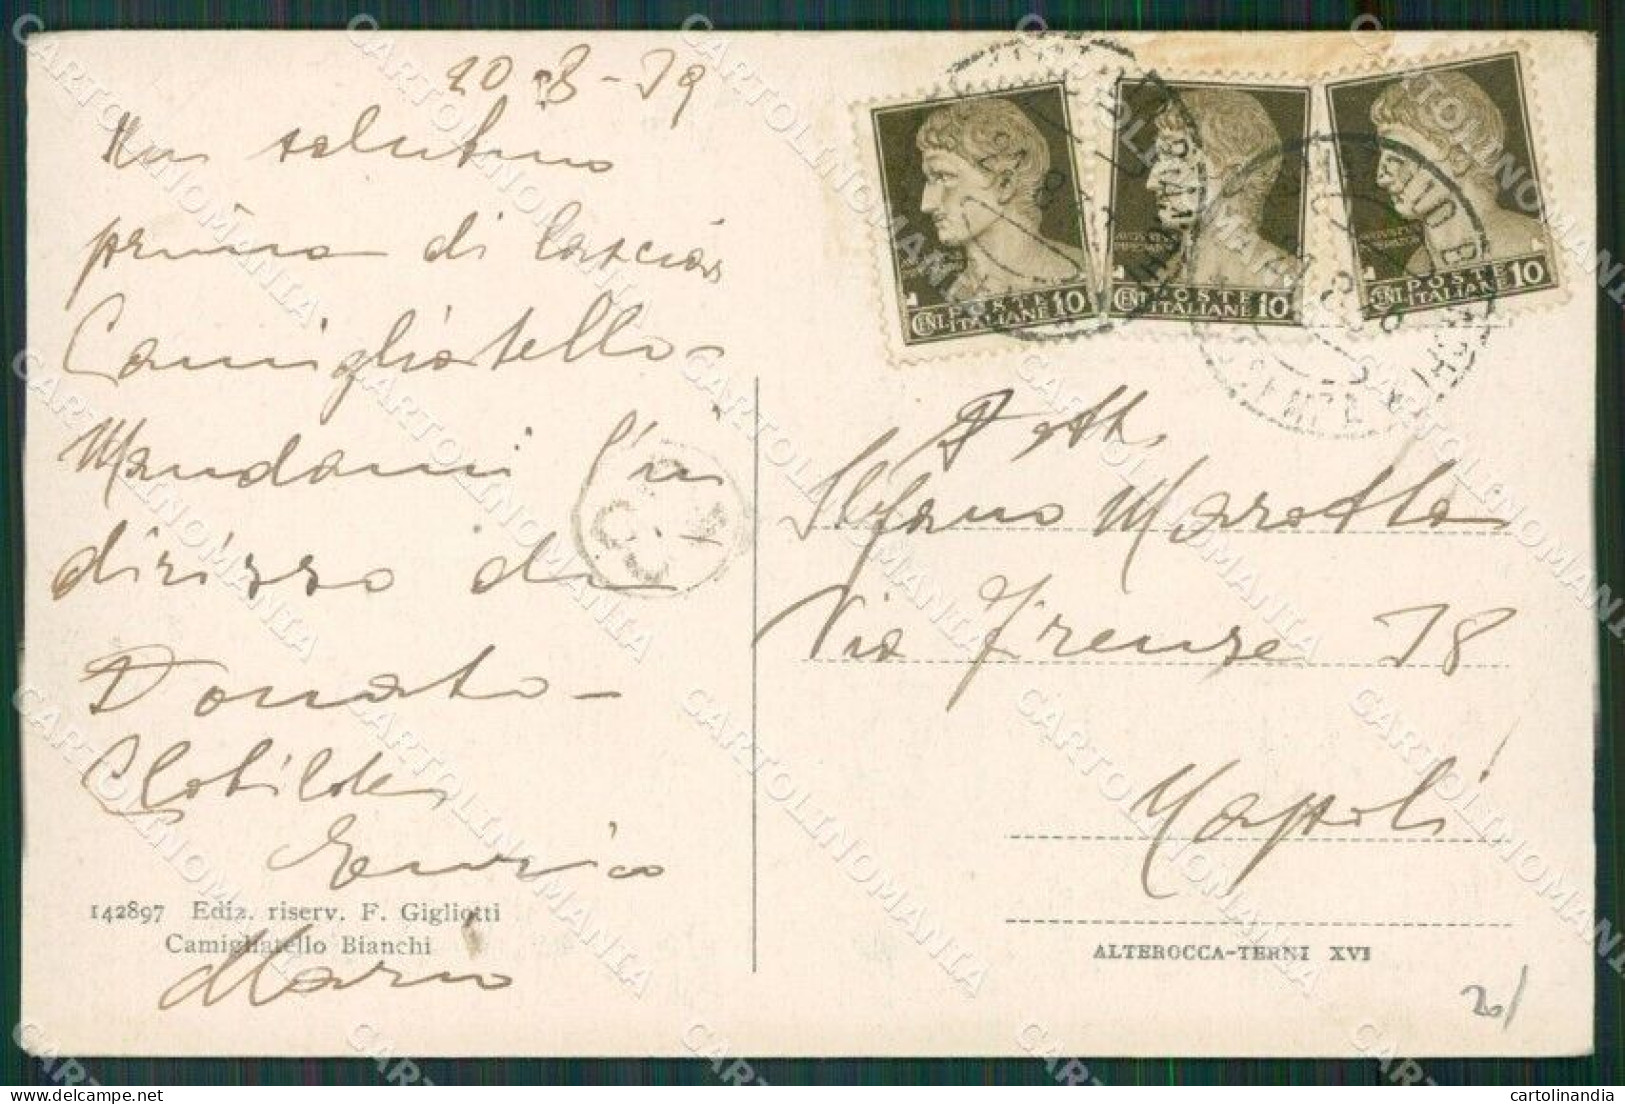 20-8-39
Un salutino
prima di lasciar
Camigliatello -
Mandami l'in
dirizzo di
Donato -
Clotilde
Enrico
Mario
142897 Ediz. riserv. F. Gigliotti
Camigliatello Bianchi
CENT. POSTE ITALIANE 10
CENT. POSTE ITALIANE 10
CENT. POSTE ITALIANE 10
Dott.
Stefano Marotta
Via Firenze 38
Napoli
ALTEROCCA-TERNI XVI
20/
CARTOLINOMANIA
cartolinandia